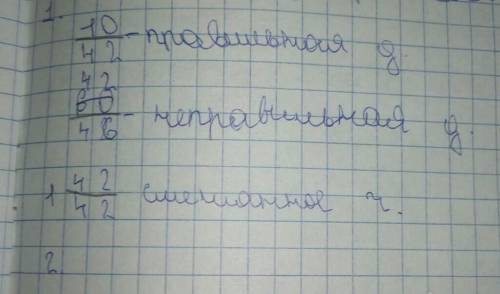 1.
10/42 - правильная д.
42
60/46 - неправильная д.
1 42/42 смешанное ч.
2